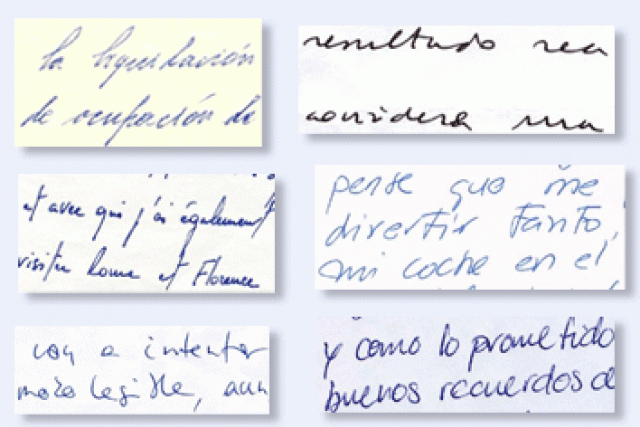 la liquidación
de ocupación de
resultado rea
considera una
et avec qui j'ai également
visiter Rome et Florence
pense que me
divertir tanto,
mi coche en el
voy a intentar
más legible, aun
y como lo prometido
buenos recuerdos de